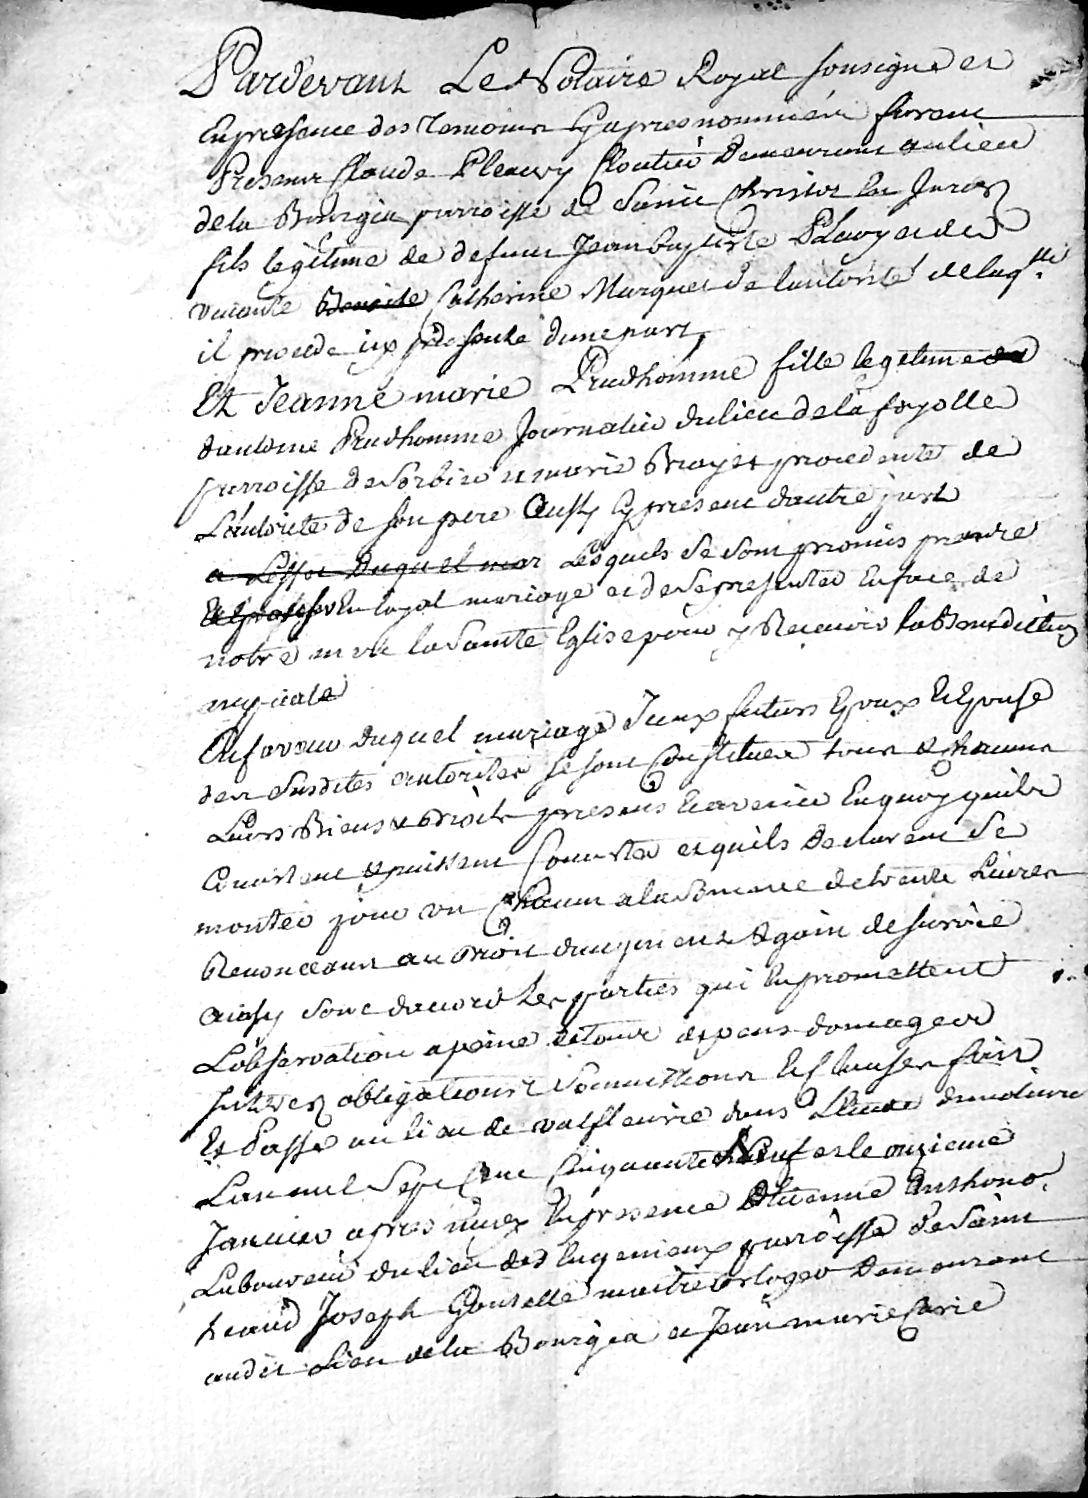 Pardevant Le Notaire Royal sousigné et
En presence des Temoins Cy apres nommées furent
Presents Claude Pleavy Cloutié Demeurant au lieu
de la Bourgia parroisse de Saint Christot la Jarez
fils legitime de defunt Jean baptiste Plavy et de
vivante Benoite Catherine Marquet de lautorité de laqlle
il procede icy presente dune part,
Et Jeanne marie Prudhomme fille legitime de
dantoine Prudhomme Journalié du lieu de la fayolle
parroisse de Sorbier et marie Bruyet procedente de
Lautorité de son pere Aussy Cy present dautre part
a Leffet Duquel mar Lesquels se sont promis prendre
En loyal mariage et de se presenter En face de
notre mere la Sainte Eglise pour y Recevoir la Benediction
nuptiale
En faveur duquel mariage Iceux futurs Epoux Et Epouse
des Susdites autorites se sont Constitues tous & chacuns
Leurs Biens & Droits presents Et avenir En quoy quils
Consistent & puissent Consister et quils Declarent se
montes pour un Chacun a la Somme de trente Livres
Renonceant au Droit daugment & gain de survie
ainsy sont daccord Les parties qui En promettent
Lobservation a peine de tous depens domages
Interez obligations Soumissions Et Clauses fait
Et Passé au lieu de valfleurie dans Létude du notaire
Lan mil Sept Cent Cinquante Neuf et le onzieme
Janvier apres midy En presence dEtienne Anthono.
Laboureur du lieu des Ingenieux parroisse de Saint
heand Joseph Gonselle maitre orloger Demeurant
audit Lieu de la Bourgia et Jean marie Carie